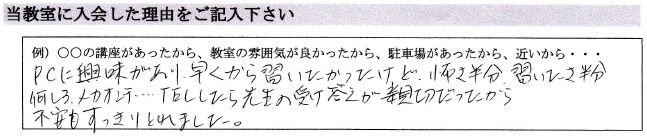 当教室に入会した理由をご記入下さい
例）○○の講座があったから、教室の雰囲気が良かったから、駐車場があったから、近いから・・・
PCに興味があり、早くから習いたかったけど、怖さ半分、習いたさ半分
何しろ、メカオンチ…、TELしたら先生の受け答えが親切だったから
不安もすっきりとれました。